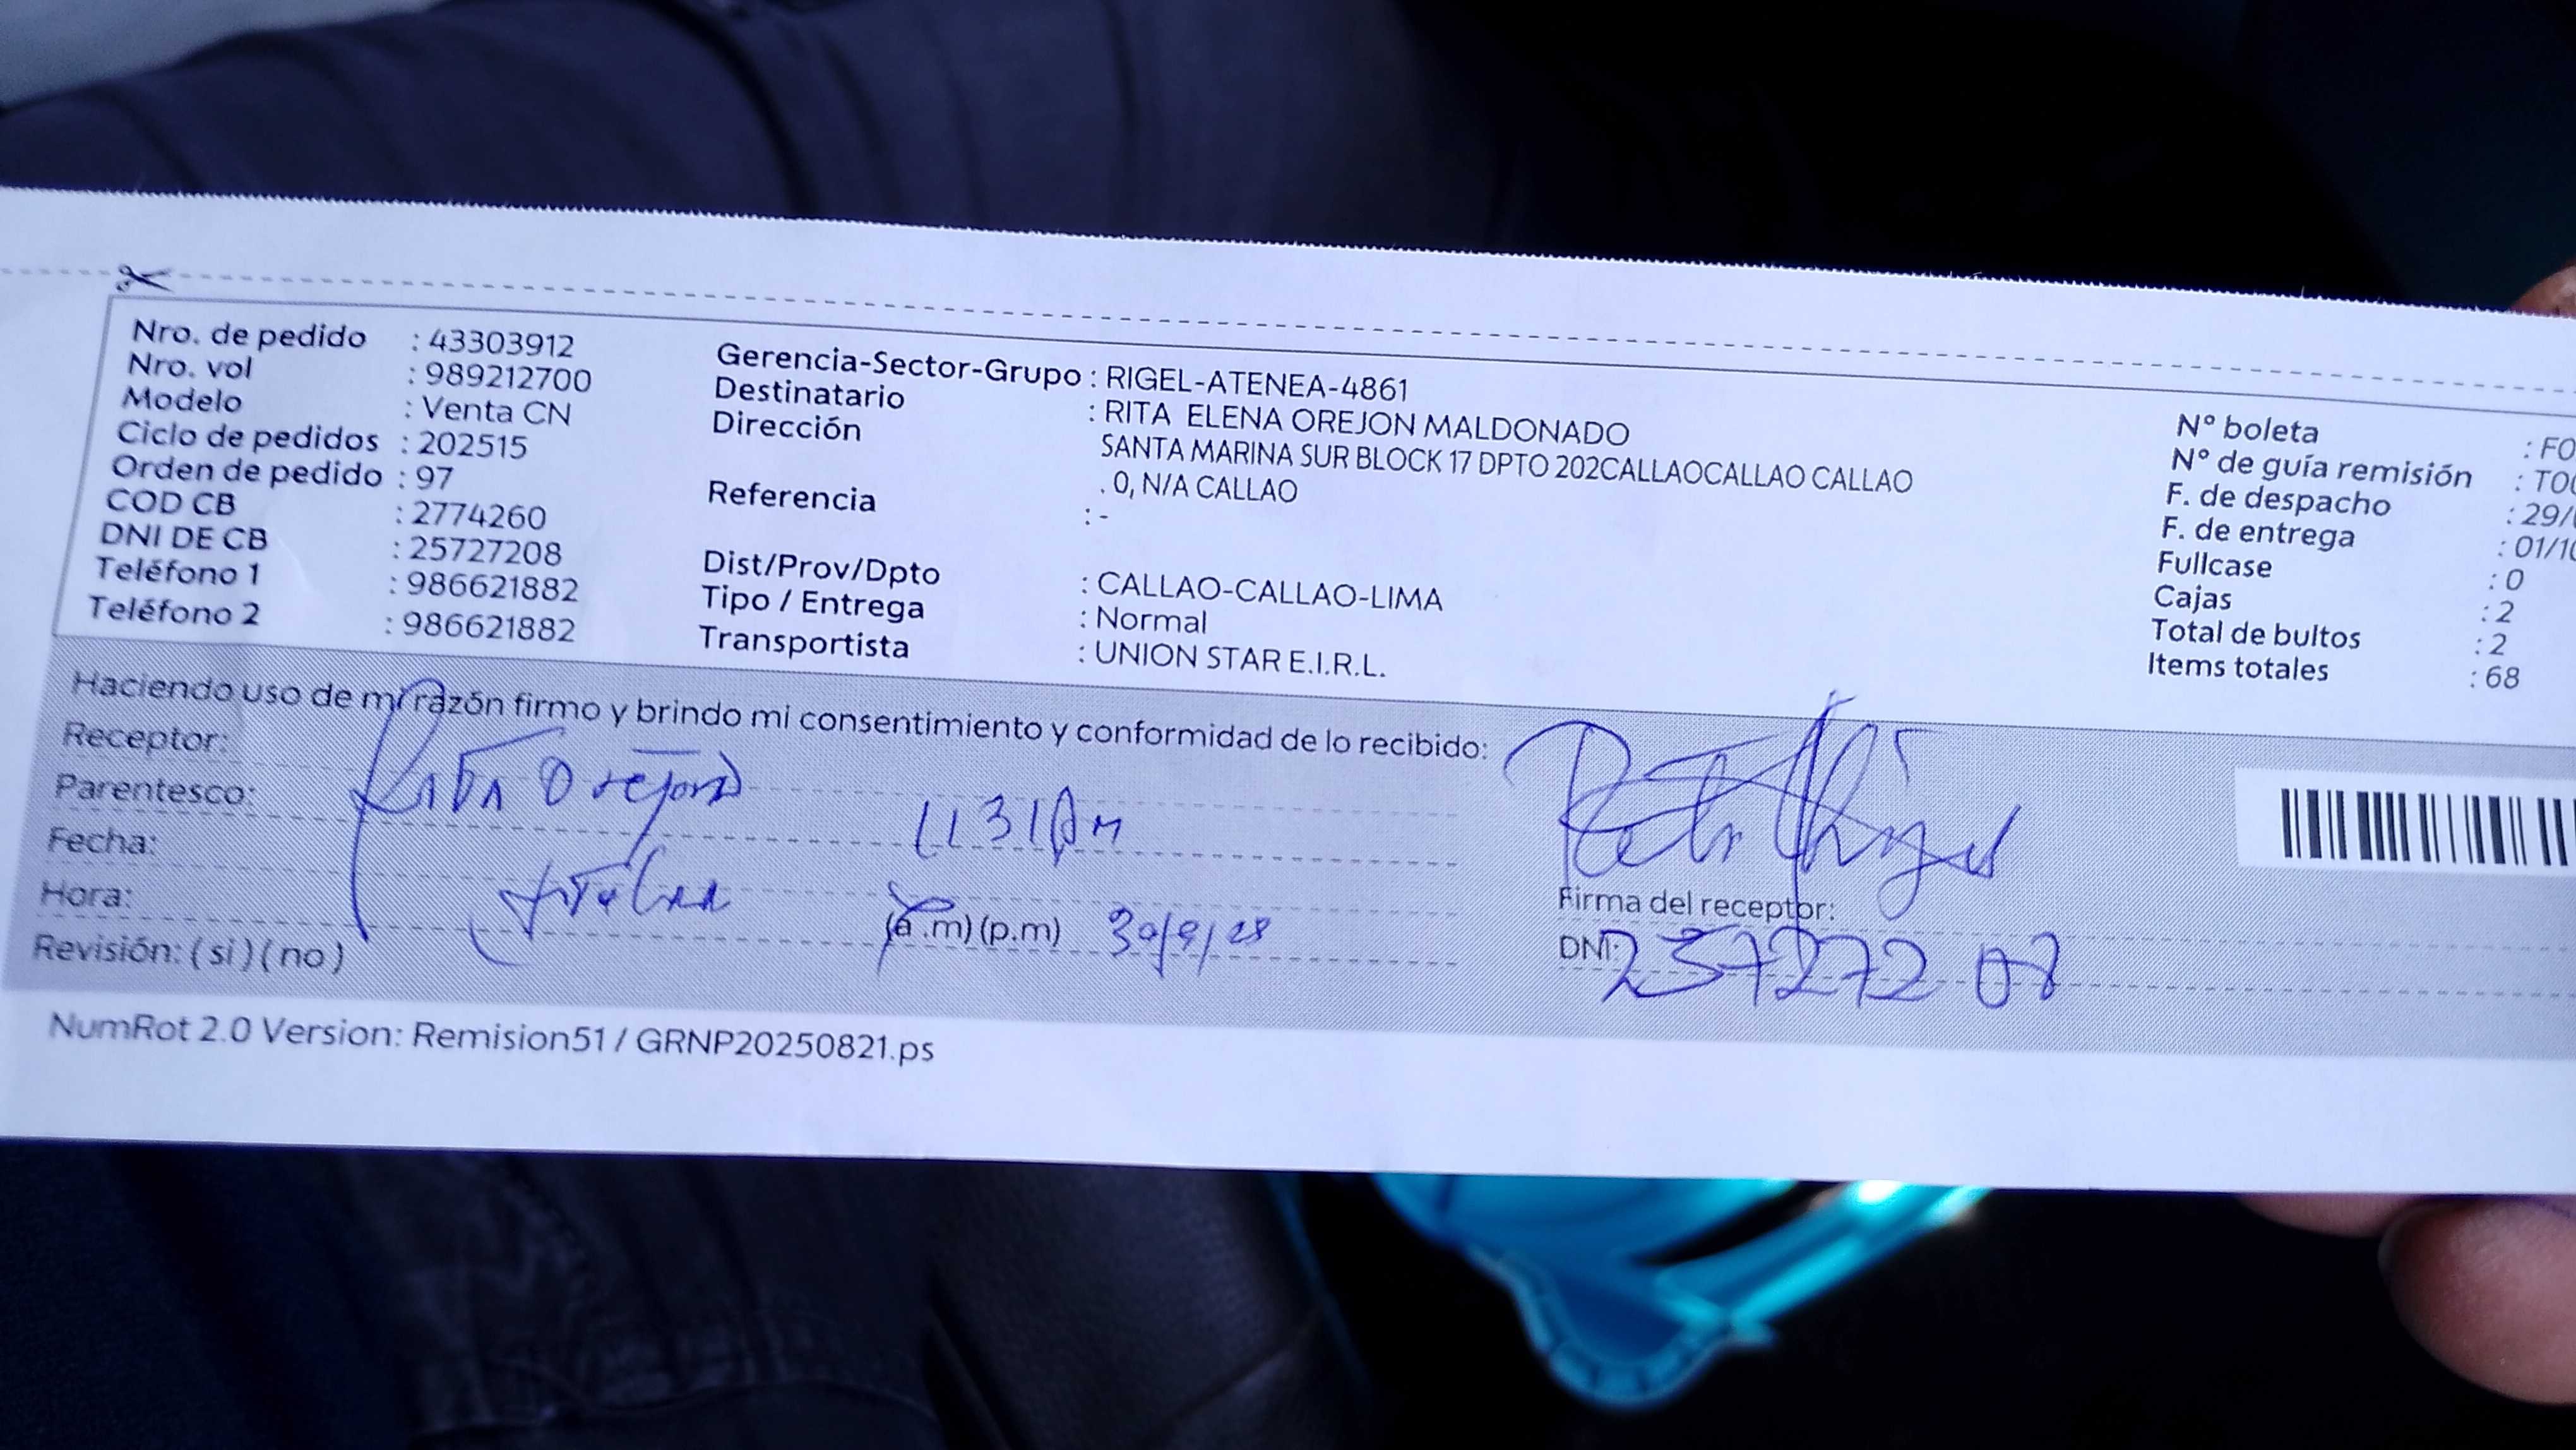 Nro. de pedido : 43303912
Nro. vol : 989212700
Modelo : Venta CN
Ciclo de pedidos : 202515
Orden de pedido : 97
COD CB : 2774260
DNI DE CB : 25727208
Teléfono 1 : 986621882
Teléfono 2 : 986621882
Gerencia-Sector-Grupo : RIGEL-ATENEA-4861
Destinatario : RITA ELENA OREJON MALDONADO
Dirección SANTA MARINA SUR BLOCK 17 DPTO 202CALLAOCALLAO CALLAO
. 0, N/A CALLAO
Referencia : -
Dist/Prov/Dpto : CALLAO-CALLAO-LIMA
Tipo / Entrega : Normal
Transportista : UNION STAR E.I.R.L.
N° boleta : FO
N° de guía remisión : T00
F. de despacho : 29/
F. de entrega : 01/10
Fullcase : 0
Cajas : 2
Total de bultos : 2
Items totales : 68
Haciendo uso de mi razón firmo y brindo mi consentimiento y conformidad de lo recibido:
Receptor: Rita Orejon
Parentesco: 1131Am
Fecha: titular
Hora: (a.m) (p.m) 30/9/25
Revisión: ( si ) ( no )
Firma del receptor:
DNI: 25727208
NumRot 2.0 Version: Remision51 / GRNP20250821.ps